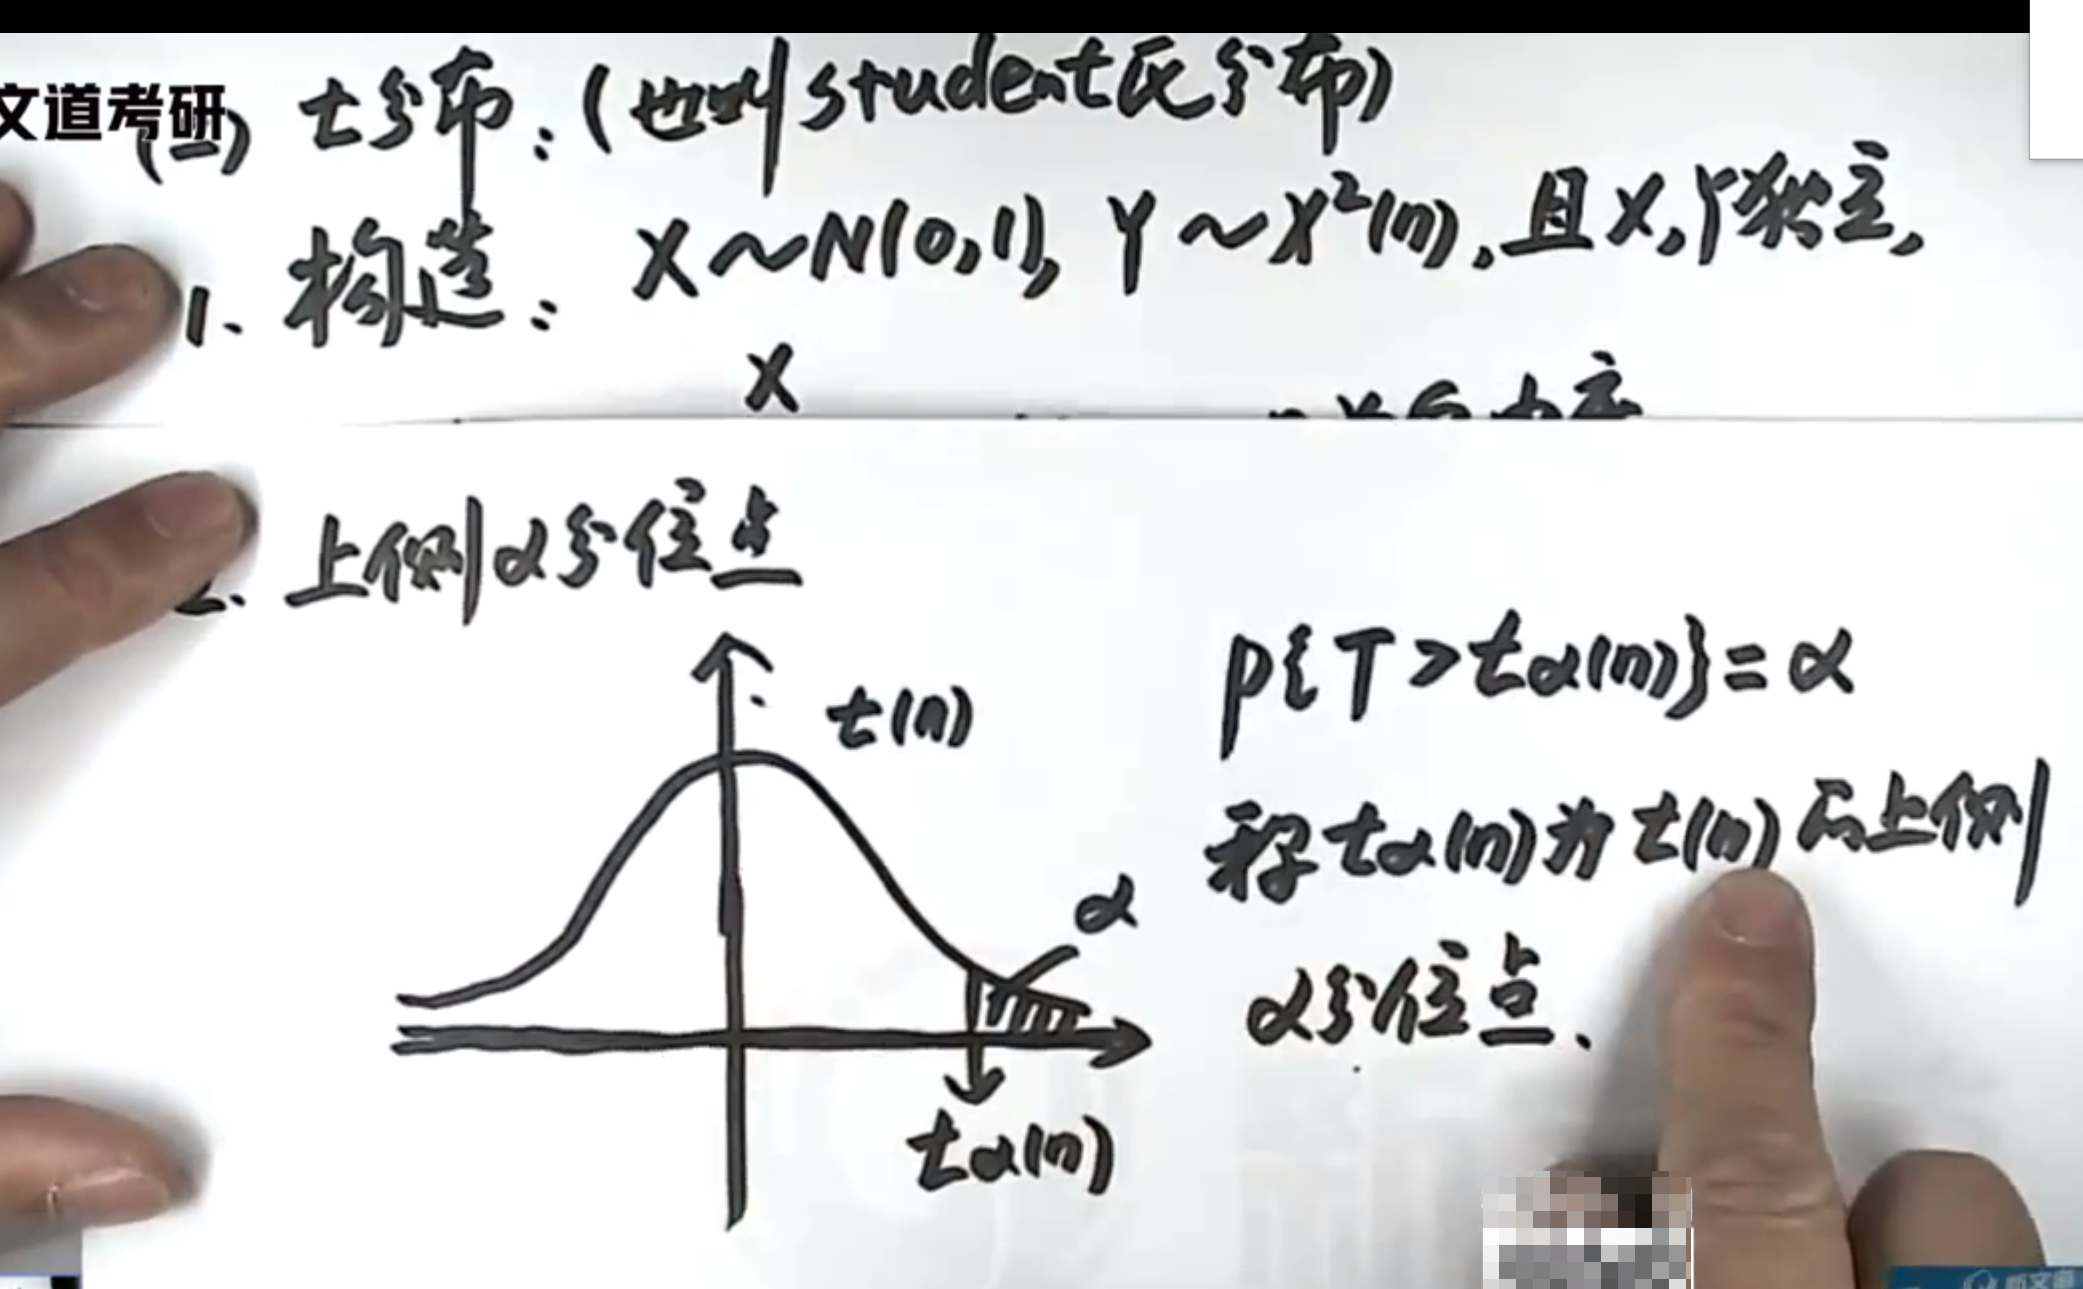 文道考研
(二) t分布:(也叫student氏分布)
1. 构造: X~N(0,1), Y~X²(n), 且X,Y独立,
X
2. 上侧α分位点
t(n)
α
tα(n)
P{T>tα(n)}=α
称tα(n)为t(n)的上侧
α分位点.